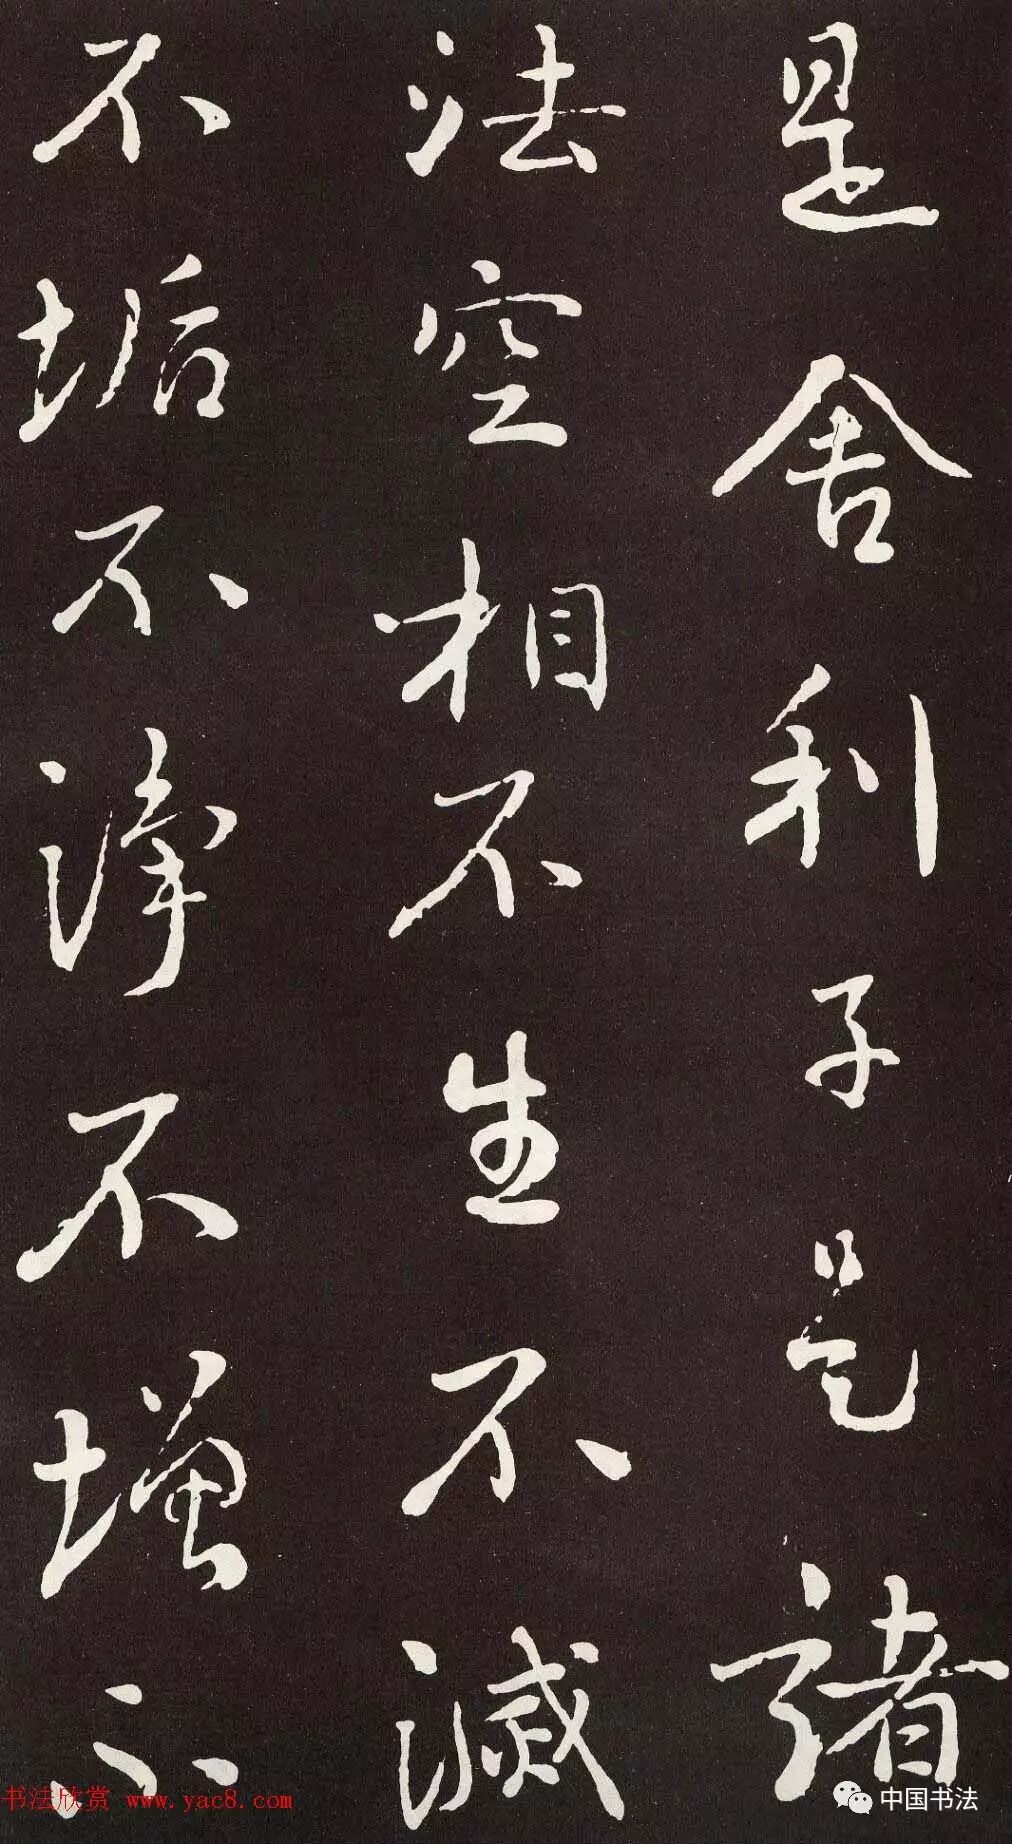 是舍利子是諸
法空相不生不滅
不垢不淨不增不
书法欣赏 www.yac8.com
中国书法